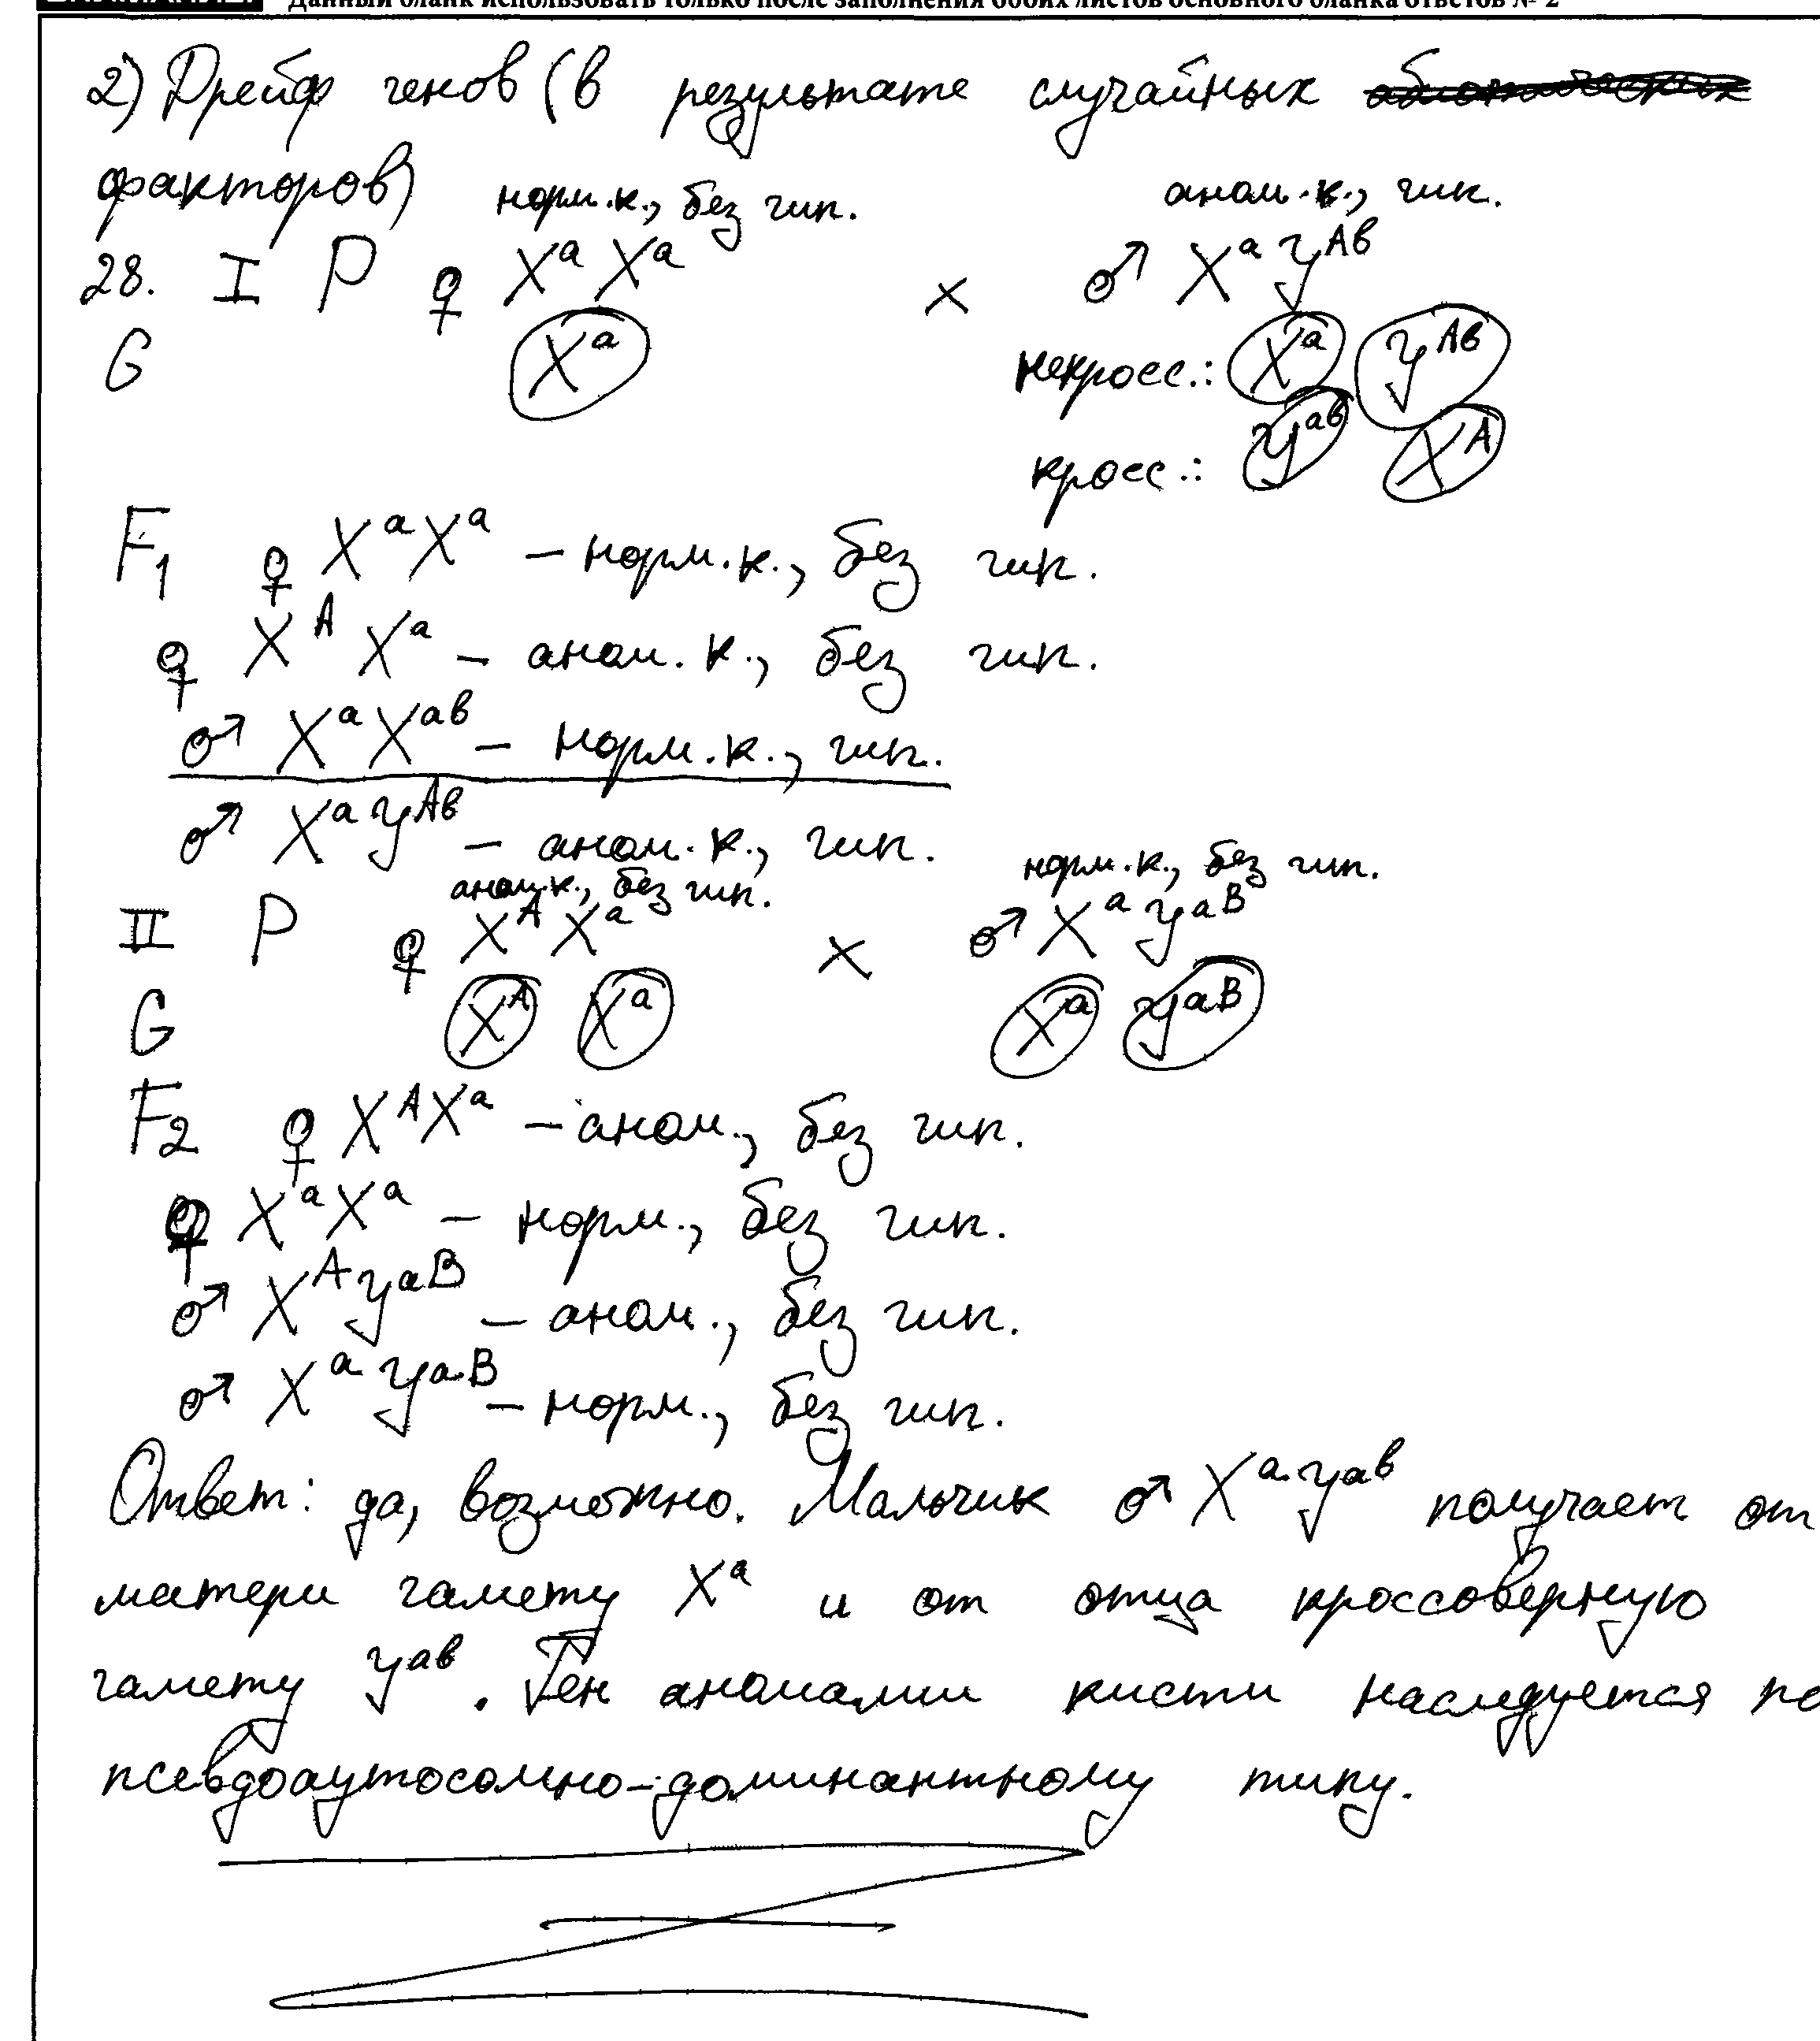 Данный бланк использовать только после заполнения обоих листов основного бланка ответов № 2
2) Дрейф генов (в результате случайных
факторов)
норм.к., без гип. аном.к., гип.
28. I P ♀ XᵃXᵃ × ♂ XᵃYᴬᵇ
G Xᵃ некросс.: Xᵃ Yᴬᵇ
кросс.: Yᵃᵇ Xᴬ
F₁ ♀ XᵃXᵃ – норм.к., без гип.
♀ XᴬXᵃ – аном.к., без гип.
♂ XᵃXᵃᵇ – норм.к., гип.
♂ XᵃYᴬᵇ – аном.к., гип.
аном.к., без гип. норм.к., без гип.
II P ♀ XᴬXᵃ × ♂ XᵃYᵃᴮ
G Xᴬ Xᵃ Xᵃ Yᵃᴮ
F₂ ♀ XᴬXᵃ – аном., без гип.
♀ XᵃXᵃ – норм., без гип.
♂ XᴬYᵃᴮ – аном., без гип.
♂ XᵃYᵃᴮ – норм., без гип.
Ответ: да, возможно. Мальчик ♂ XᵃYᵃᵇ получает от
матери гамету Xᵃ и от отца кроссоверную
гамету Yᵃᵇ. Ген аномалии кисти наследуется по
псевдоаутосомно-доминантному типу.